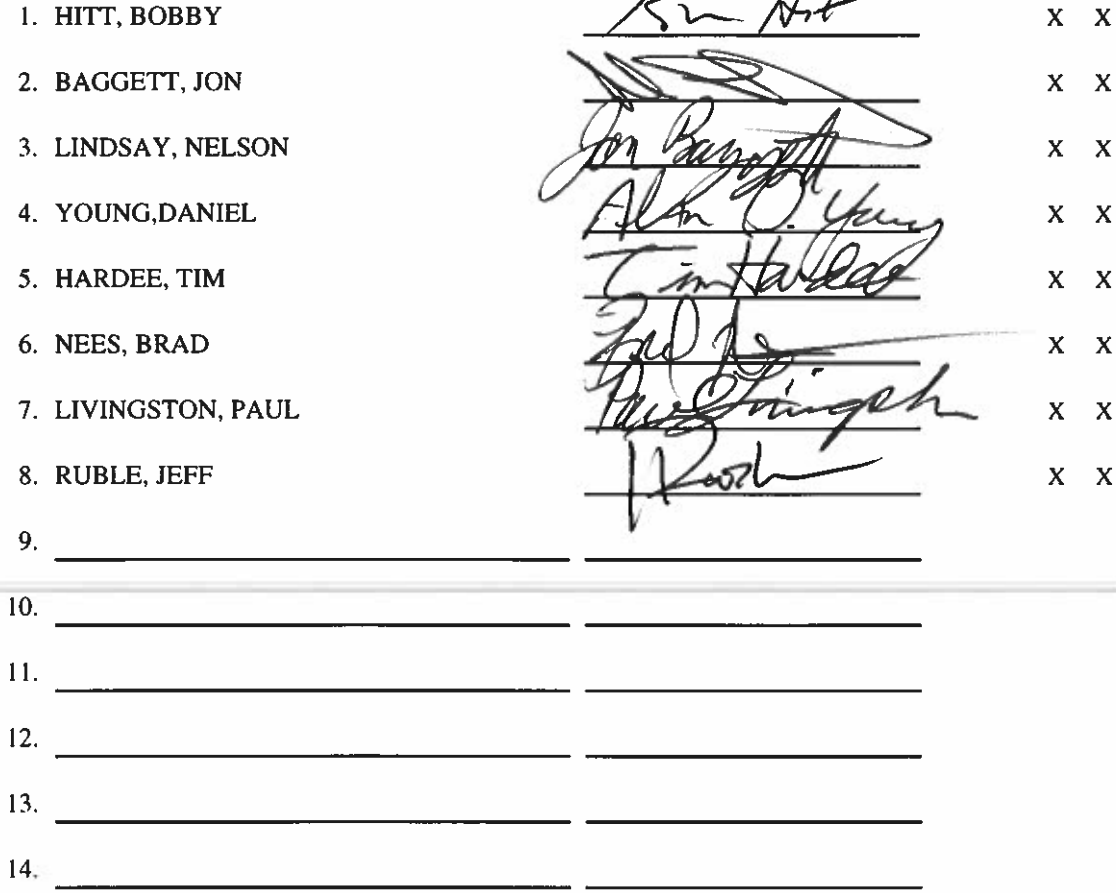 1. HITT, BOBBY X X
2. BAGGETT, JON X X
3. LINDSAY, NELSON Jon Baggett X X
4. YOUNG,DANIEL Alan D. Young X X
5. HARDEE, TIM Tim Hardee X X
6. NEES, BRAD Brad X X
7. LIVINGSTON, PAUL Paul Livingston X X
8. RUBLE, JEFF X X
9.
10.
11.
12.
13.
14.